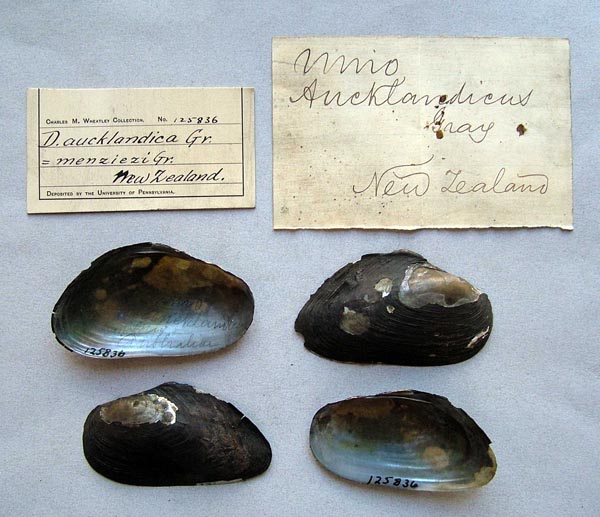 CHARLES M. WHEATLEY COLLECTION. No. 125836
D. aucklandica Gr.
= menziezi Gr.
New Zealand.
DEPOSITED BY THE UNIVERSITY OF PENNSYLVANIA.
Unio
Aucklandicus
Gray
New Zealand
125836
125836